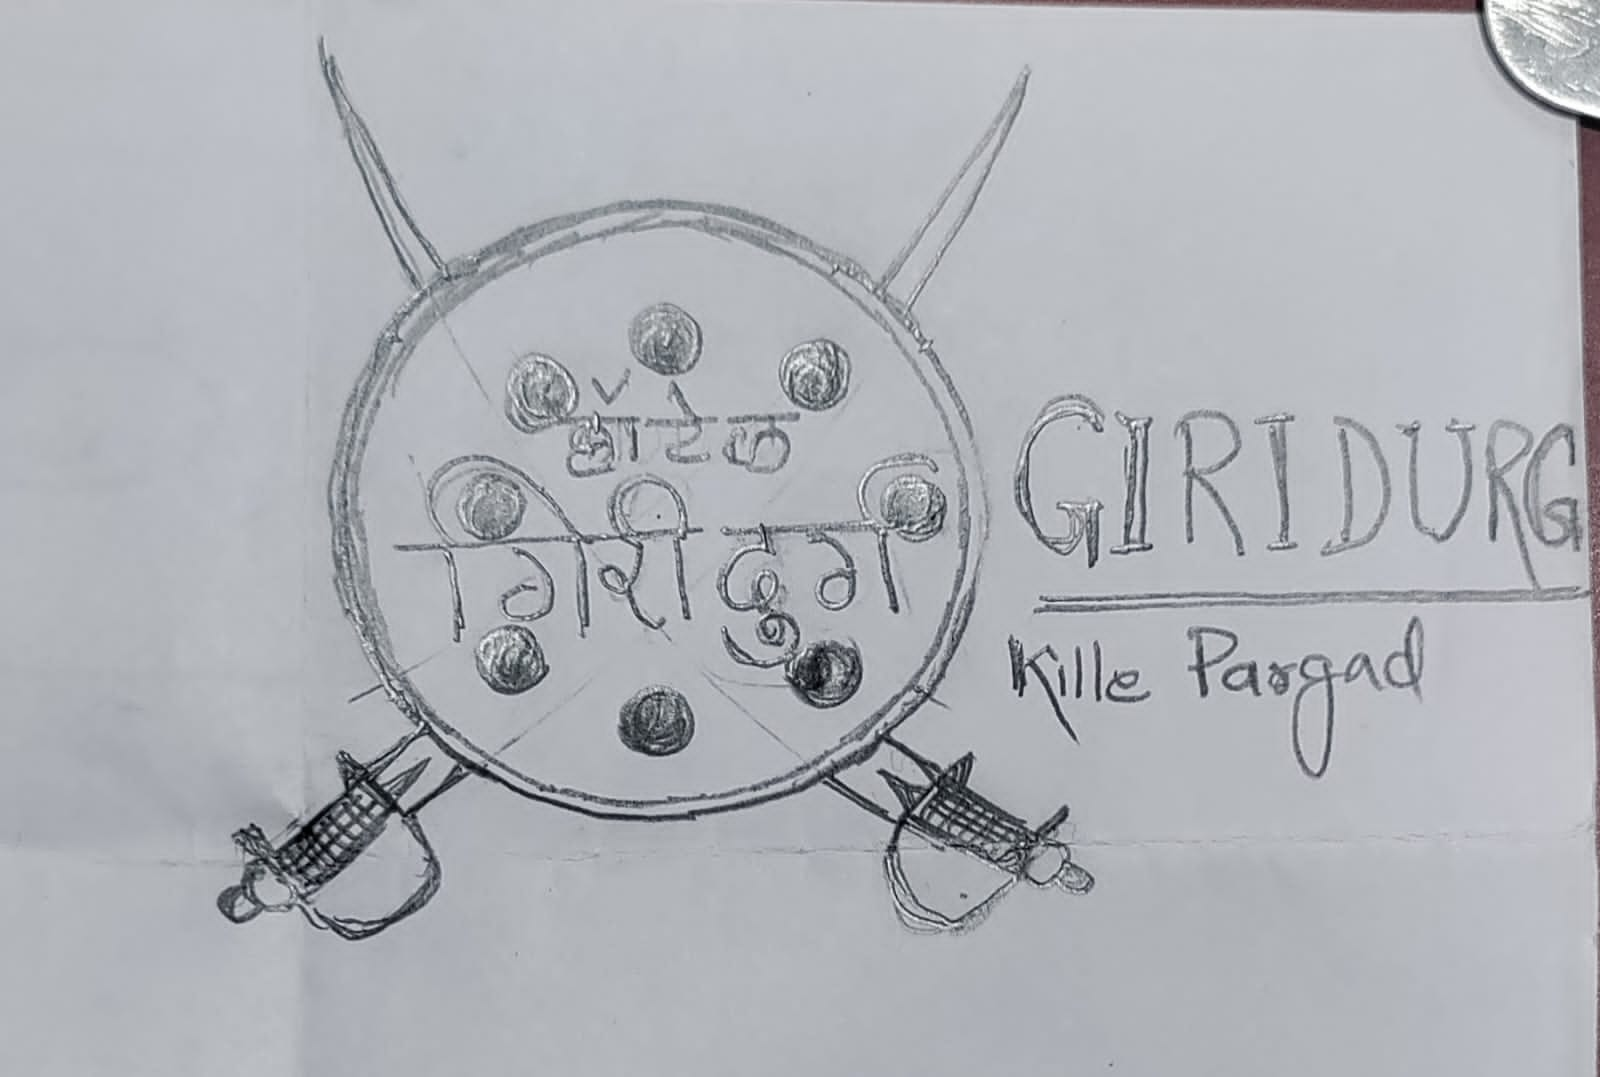 हॉटेल
गिरी दुर्ग
GIRIDURG
Kille Pargad